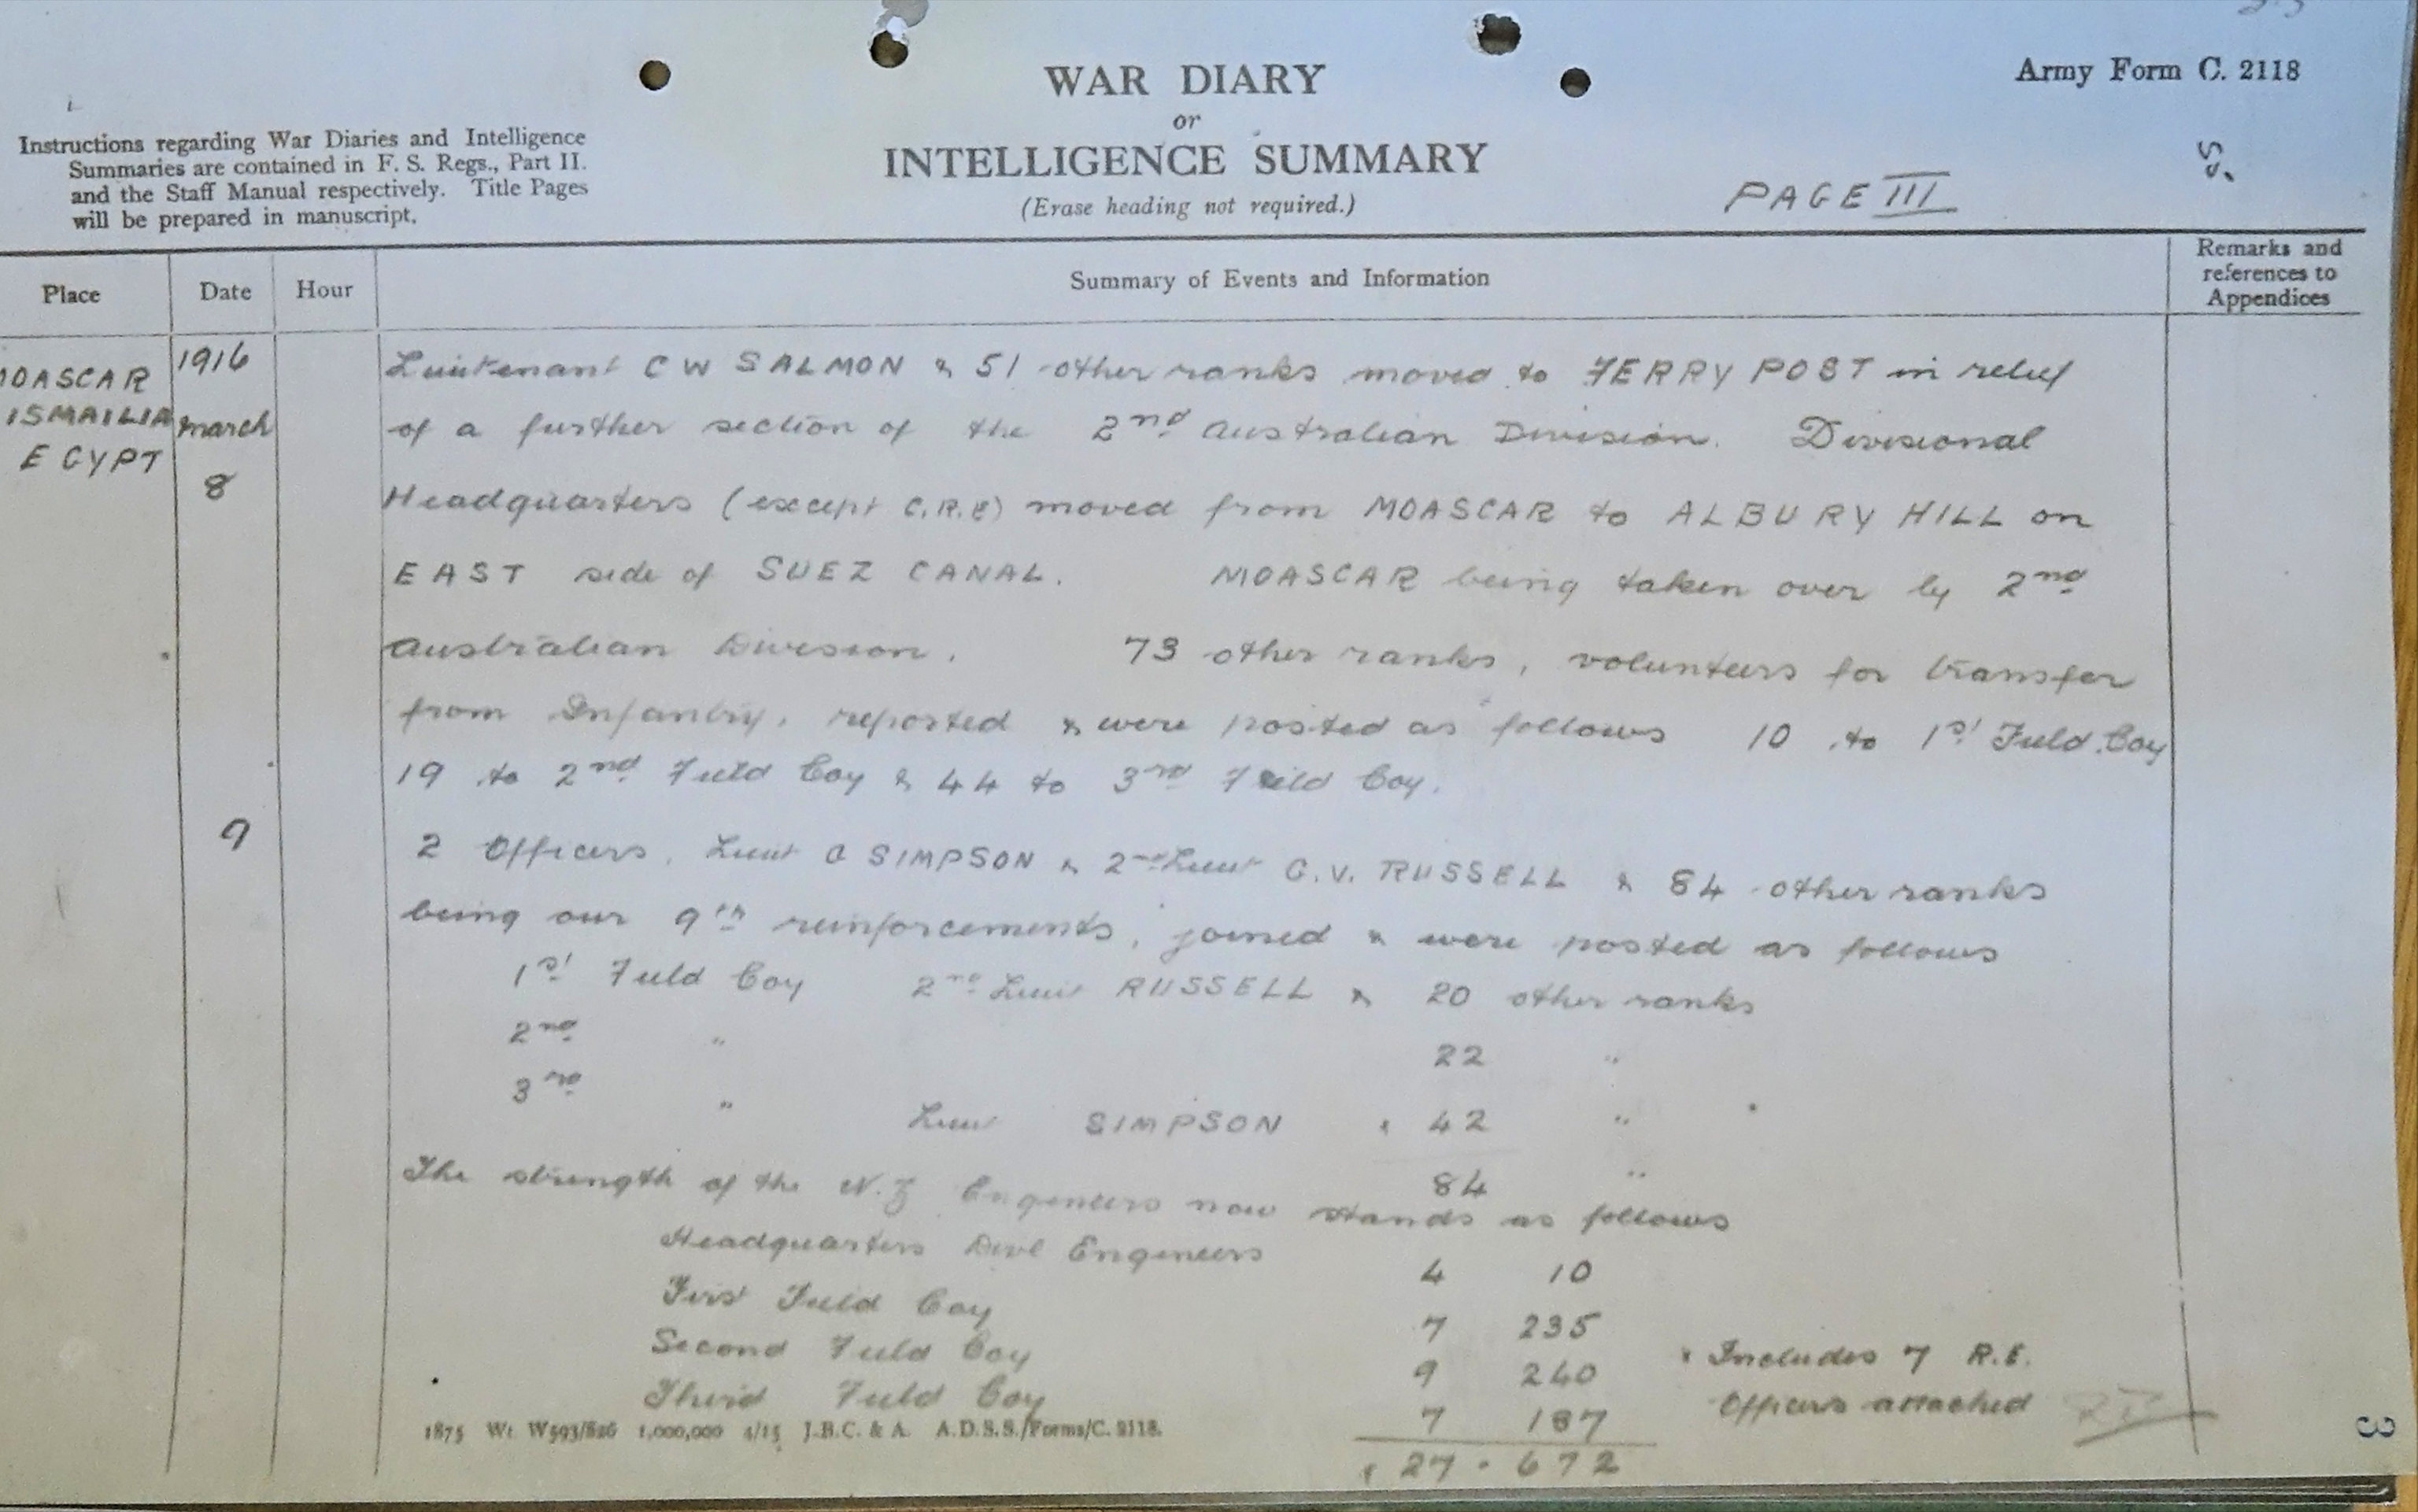 WAR DIARY
or
INTELLIGENCE SUMMARY
(Erase heading not required.)
Army Form C. 2118
Instructions regarding War Diaries and Intelligence
Summaries are contained in F. S. Regs., Part II.
and the Staff Manual respectively. Title Pages
will be prepared in manuscript.
PAGE III
Place Date Hour Summary of Events and Information Remarks and references to Appendices
MOASCAR
ISMAILIA
EGYPT
1916
March
8
Lieutenant C W SALMON & 51 other ranks moved to FERRY POST in relief
of a further section of the 2nd Australian Division. Divisional
Headquarters (except C.R.E) moved from MOASCAR to ALBURY HILL on
EAST side of SUEZ CANAL. MOASCAR being taken over by 2nd
Australian Division. 73 other ranks, volunteers for transfer
from Infantry, reported & were posted as follows 10 to 1st Field Coy
19 to 2nd Field Coy & 44 to 3rd Field Coy.
9
2 Officers, Lieut A SIMPSON & 2nd Lieut C.V. RUSSELL & 84 other ranks
being our 9th reinforcements, joined & were posted as follows
1st Field Coy 2nd Lieut RUSSELL & 20 other ranks
2nd " 22 "
3rd " Lieut SIMPSON & 42 "
84 "
The strength of the N.Z Engineers now stands as follows
Headquarters Divl Engineers 4 10
First Field Coy 7 235
Second Field Coy 9 240
Third Field Coy 7 187
x 27 . 672
x Includes 7 R.E.
Officers attached
1875 Wt W593/826 1,000,000 4/15 J.B.C. & A. A.D.S.S./Forms/C. 2118.
3